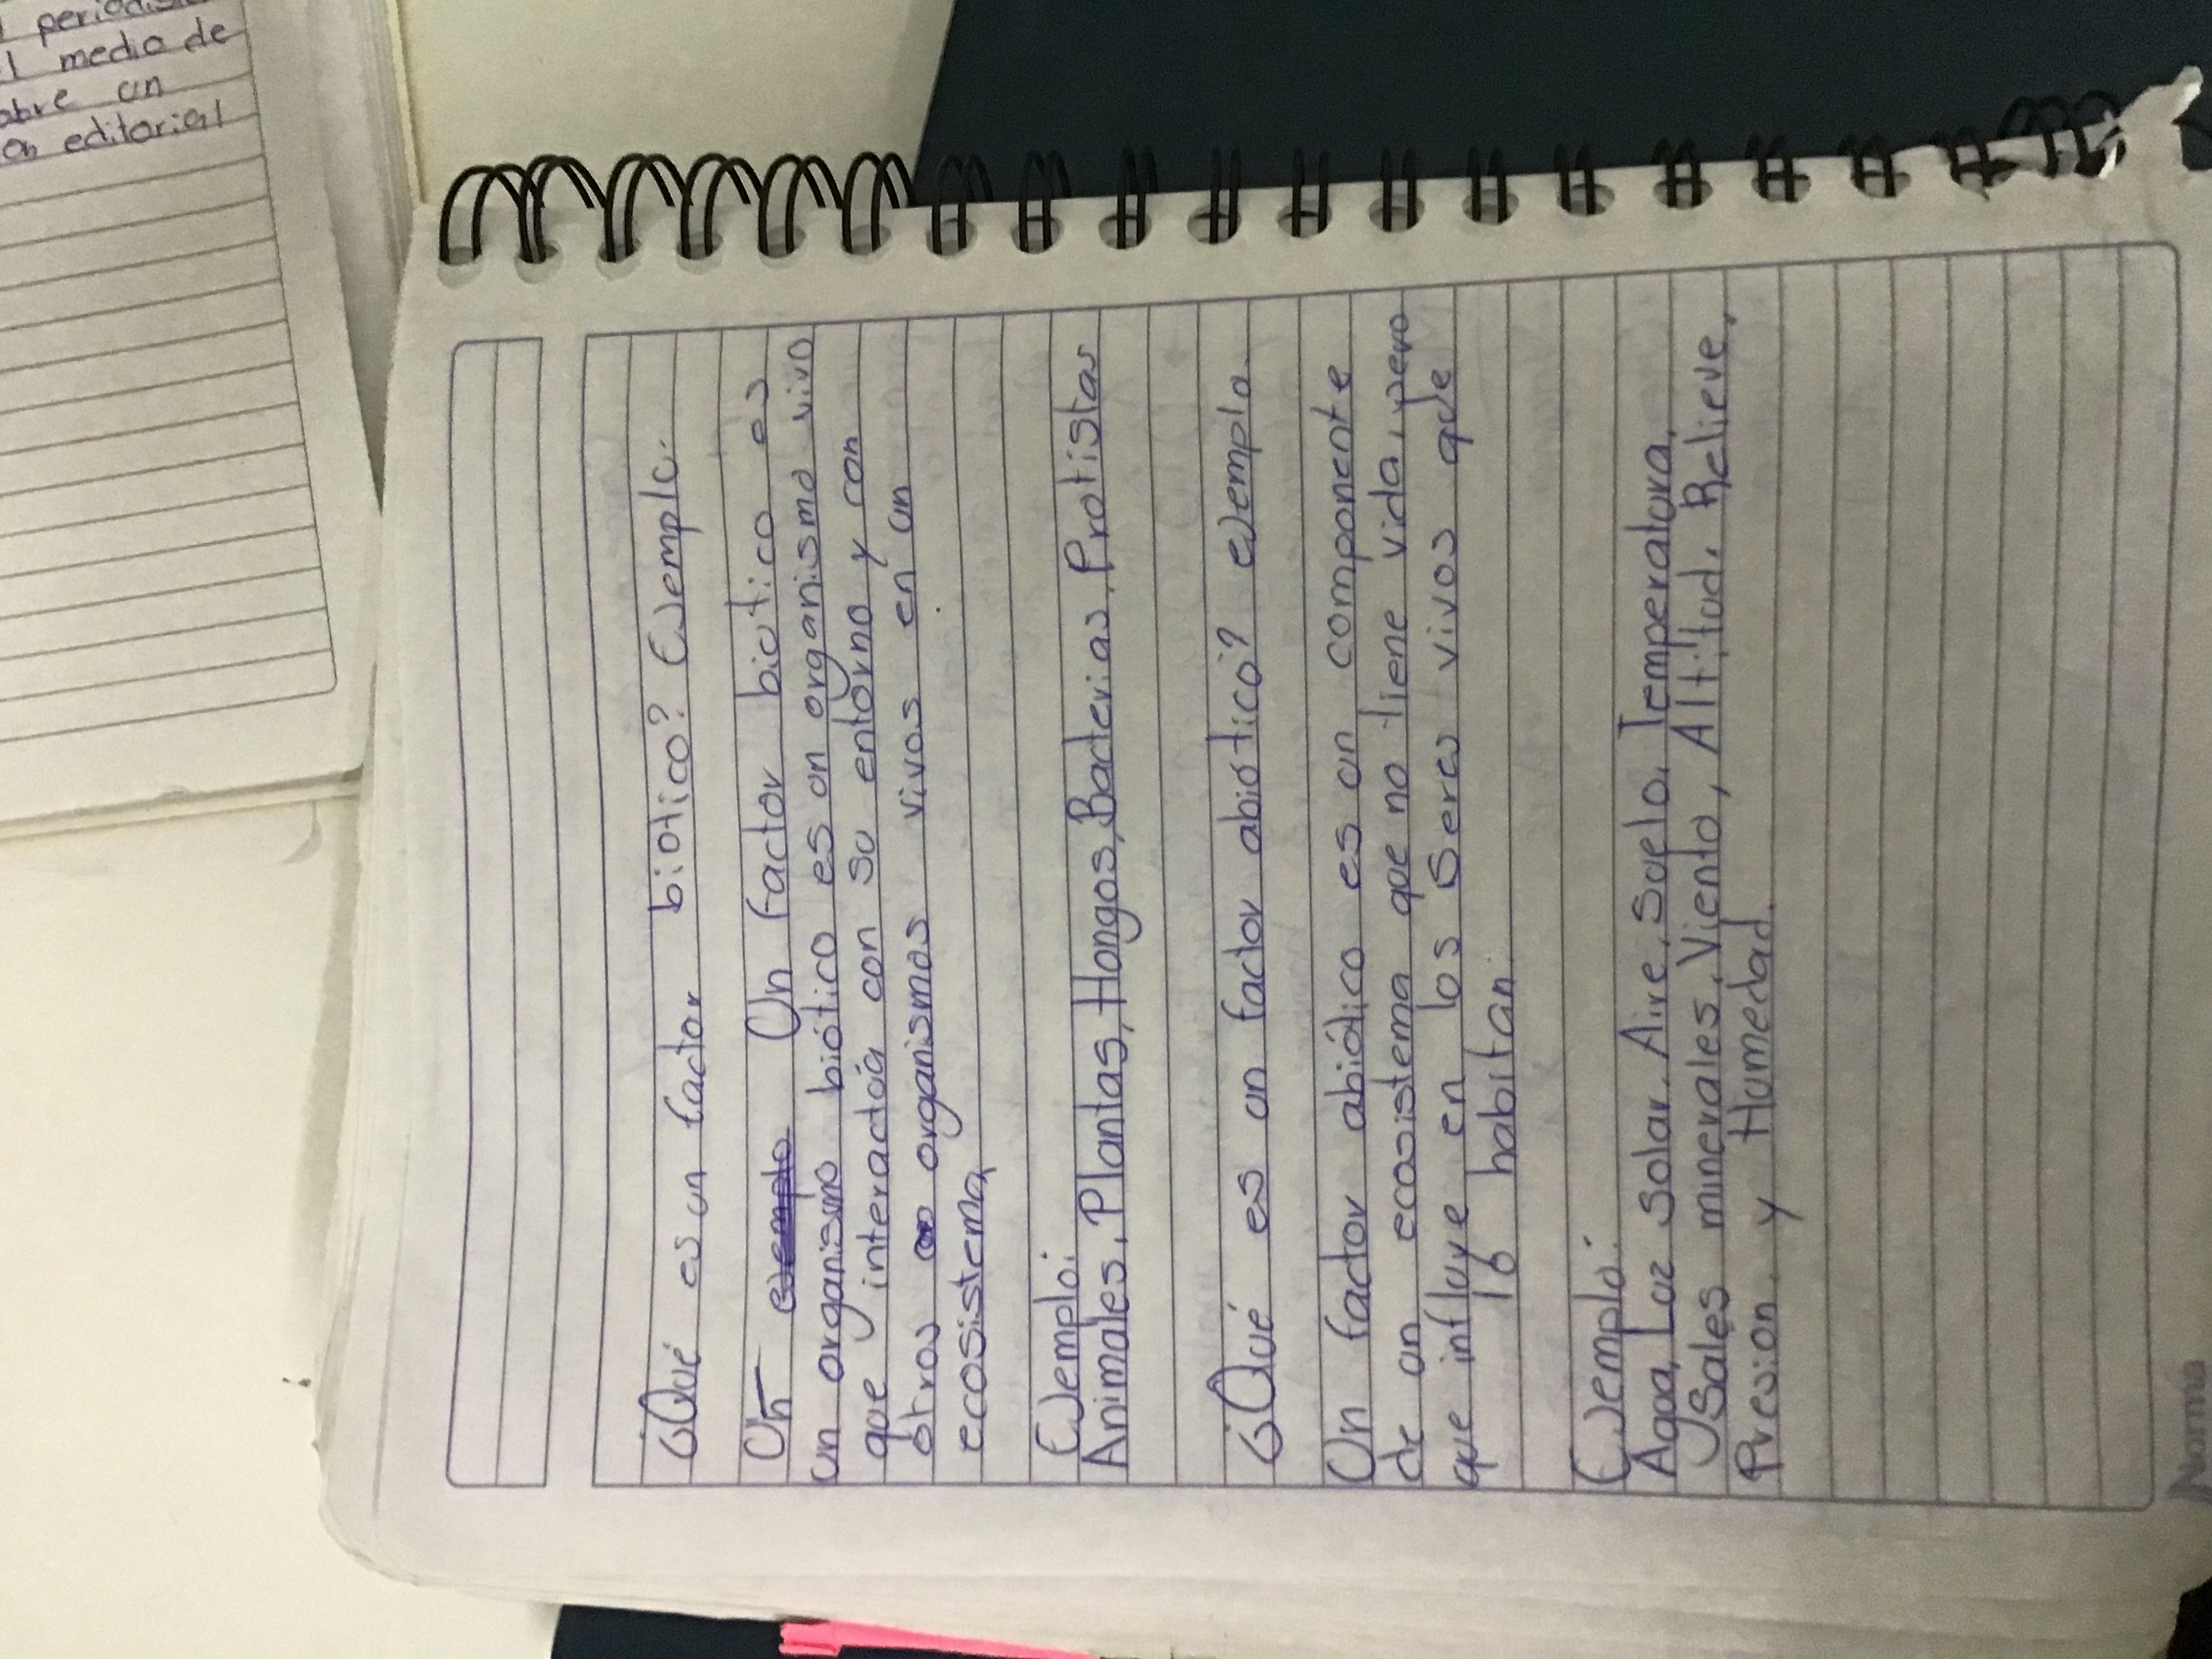 periodis
l medio de
obre un
on editorial
¿Qué es un factor biotico? Ejemplo.
Un ejemplo Un factor biotico es
un organismo biótico es un organismo vivo
que interactúa con su entorno y con
otros organismos vivos en un
ecosistema
Ejemplo:
Animales, Plantas, Hongos, Bacterias, Protistas
¿Qué es un factor abiótico? ejemplo.
Un factor abiótico es un componente
de un ecosistema que no tiene vida, pero
que influye en los Seres vivos que
lo habitan.
Ejemplo:
Agua, Luz solar, Aire, Suelo, Temperatura,
Sales minerales, Viento, Altitud, Relieve,
Presion, y Humedad.
Norma